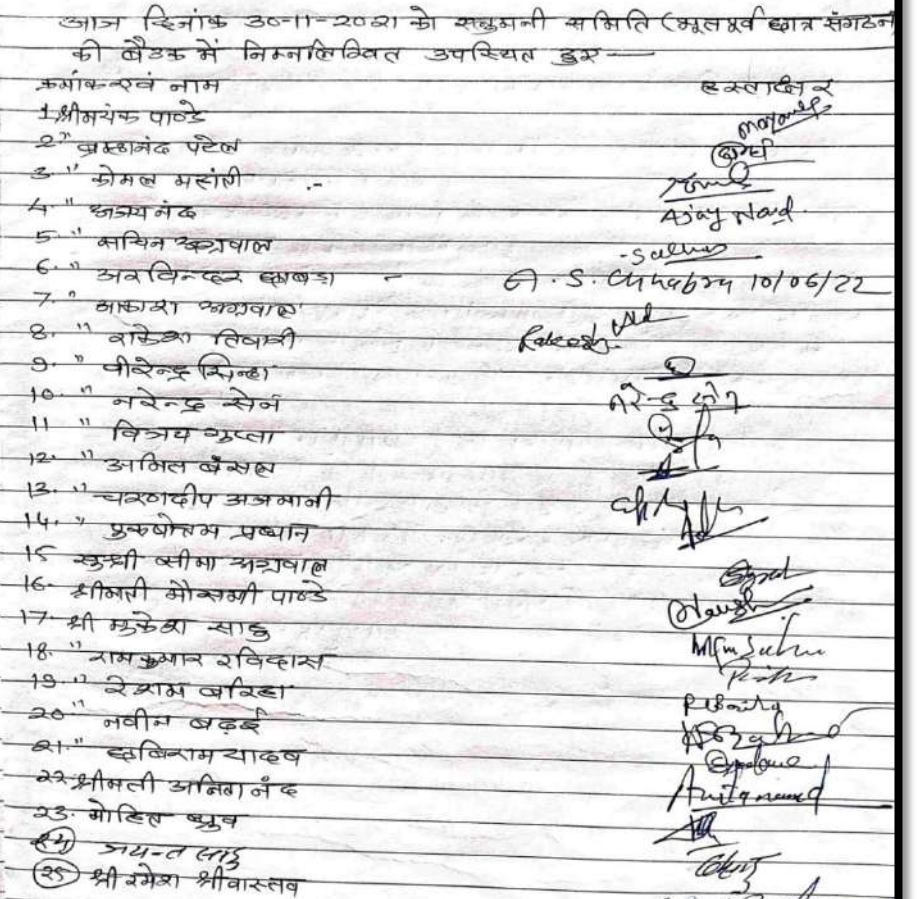 आज दिनांक 30-11-2021 को एलुमनी समिति (भूतपूर्व छात्र संगठन
की बैठक में निम्नलिखित उपस्थित हुए —
क्रमांक एवं नाम हस्ताक्षर
1. श्री मयंक पाण्डे
2. " ब्रम्हानंद पटेल
3. " कोमल महांती
4. " अजय नंद Ajay Nand.
5. " सचिन अग्रवाल
6. " अरविन्दर छाबड़ा - A. S. Chhabra 10/06/22
7. " आकाश अग्रवाल
8. " राकेश तिवारी Rakesh
9. " वीरेन्द्र सिन्हा
10. " नरेन्द्र सेन नरेन्द्र सेन
11 " विजय गुप्ता
12. " अमित बंसल
13. " चरणदीप अजमानी
14. " पुरूषोत्तम प्रधान
15 सुश्री सीमा अग्रवाल
16. श्रीमती मौसमी पाण्डे
17. श्री मुकेश साहू
18. " रामकुमार रविदास
19. " रेशम बारिहा
20 " नवीन बढ़ई
21. " छबिराम यादव
22. श्रीमती अनिता नंद Anita nand
23. मोहित ध्रुव
24 जयन्त साहू
25 श्री रमेश श्रीवास्तव